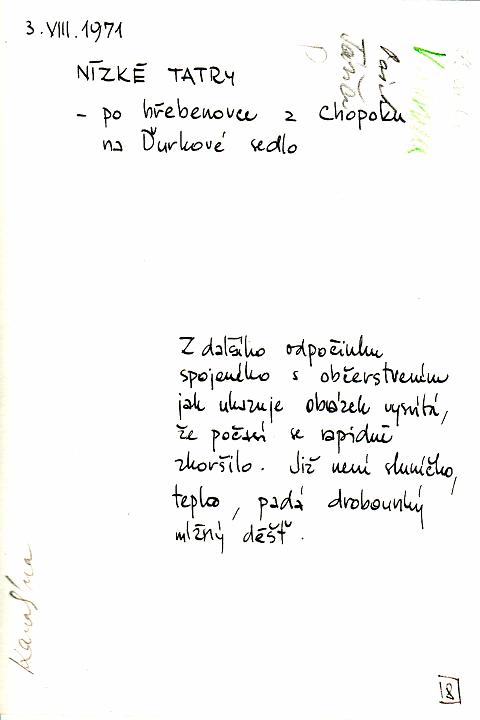 3.VIII.1971
NÍZKÉ TATRY
- po hřebenovce z Chopoku
na Ďurkové sedlo
Z dalšího odpočinku
spojeného s občerstvením
jak ukazuje obrázek vysvítá,
že počasí se rapidně
zhoršilo. Již není sluníčko,
teplo, padá drobounký
mlžný déšť.
8